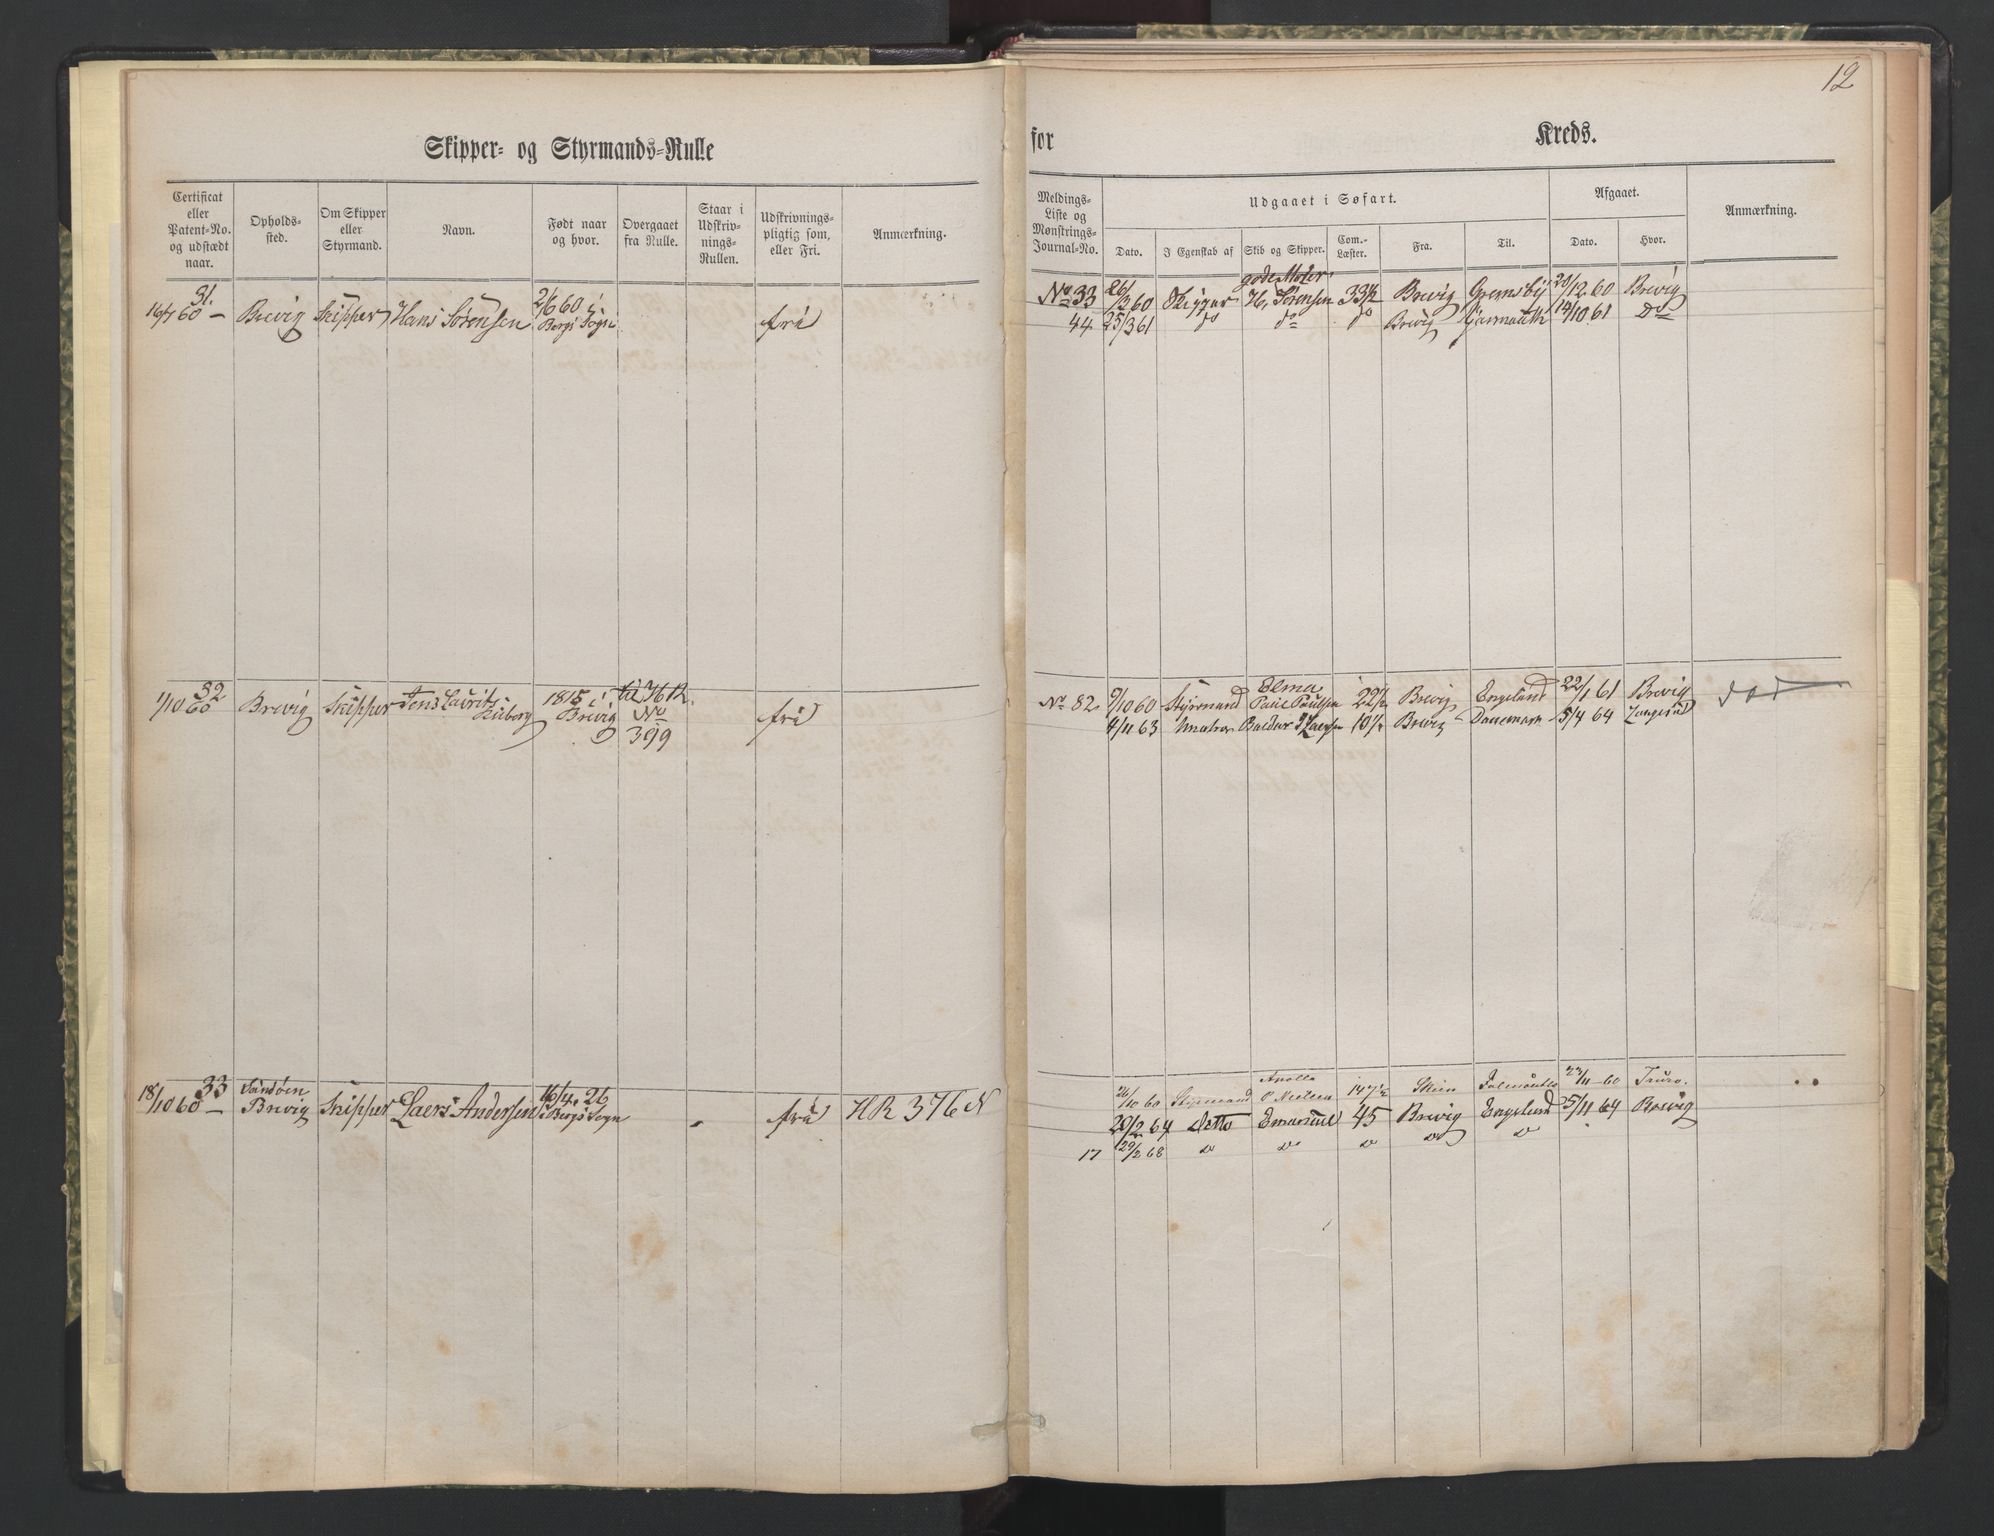 12
Skipper- og Styrmands-Rulle
for Kreds.
Certificat eller Patent-No. og udstædt naar.
Opholds-sted.
Om Skipper eller Styrmand.
Navn.
Født naar og hvor.
Overgaaet fra Rulle.
Staar i Udskriv-nings-Rullen.
Udskrivnings-pligtig som, eller Fri.
Anmærkning.
Meldings-Liste og Mønstrings-Journal-No.
Udgaaet i Søfart.
Dato.
I Egenskab af
Skib og Skipper.
Com.-Læster.
Fra.
Til.
Afgaaet.
Dato.
Hvor.
Anmærkning.
31.
16/7 60 – Brevig Skipper Hans Sørensen 2/6 60 i Bergs Sogn fri
No 33 26/3 60 Skipper gode Moder H. Sørensen 33½ Brevig Gremsby 20/12 60 Brevig
44 25/3 61 do do do Brevig Yarmouth 14/10 61 Do
32
1/10 60 Brevig Skipper Jens Laurits 1815 i Brevig til H R. No 399 fri
No 82 9/10 60 Styrmand Elma Paul Paulsen 22½ Brevig Engeland 22/1 61 Brevig død
4/11 63 Baldur 10½ Brevig Danemark 5/4 64 Langesund
33
18/10 60 – Sandøen Brevig Skipper Laers Andersen 16/4 26 i Bergs Sogn fri HR 376 N
26/10 60 Styrmand Apollo P Nielsen 147½ Skien 23/11 60 Truro.
20/2 64 Detto Emanuel 45 Brevig Engeland 25/11 64 Brevig
17 29/2 68 do do do do do